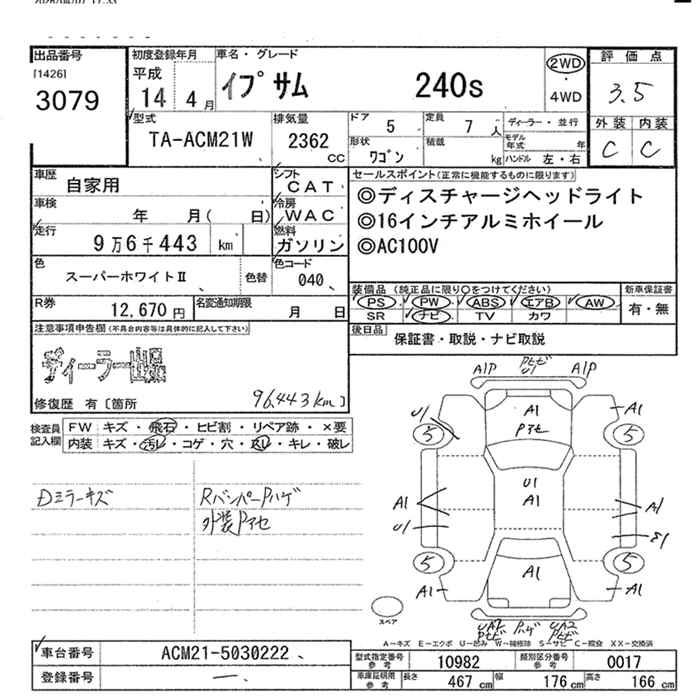 出品番号
[1426]
3079
初度登録年月
平成
14年 4月
車名・グレード
イプサム 240s
2WD
4WD
評価点
3.5
外装 内装
C C
型式
TA-ACM21W
排気量
2362 CC
ドア 5
定員 7人
形状 ワゴン
積載 kg
ディーラー・並行
モデル年式 年
ハンドル 左・右
車歴
自家用
シフト
CAT
車検
年 月( 日)
冷房
WAC
走行
9万6千443 km
燃料
ガソリン
色
スーパーホワイトⅡ
色替
色コード
040
R券
12,670円
名変通知期限
月 日
セールスポイント(正常に機能するものに限ります)
◎ディスチャージヘッドライト
◎16インチアルミホイール
◎AC100V
装備品(純正品に限り○をつけてください)
PS PW ABS エアB AW
SR ナビ TV カワ
新車保証書
有・無
後日品
保証書・取説・ナビ取説
注意事項申告欄(不具合内容等は具体的に記入して下さい)
ディーラー出品
修復歴 有〔箇所
96,443km〕
検査員記入欄
FW キズ・飛石・ヒビ割・リペア跡・×要
内装 キズ・汚レ・コゲ・穴・スレ・キレ・破レ
Dミラーキズ
RバンパーPハゲ
外装Pアセ
A1P
PヒビU1
A1P
U1
A1
Pアセ
A1
5
5
U1
A1
A1
U1
A1
E1
5
5
A1
A1
A1
Pハゲ
UA2
Pヒビ
スペア
A-キズ E-エクボ U-凹み W-補修跡 S-サビ C-腐食 XX-交換済
車台番号
ACM21-5030222
登録番号
—
型式指定番号
参考
10982
類別区分番号
参考
0017
車庫証明用
参考
長さ 467cm
幅 176cm
高さ 166cm